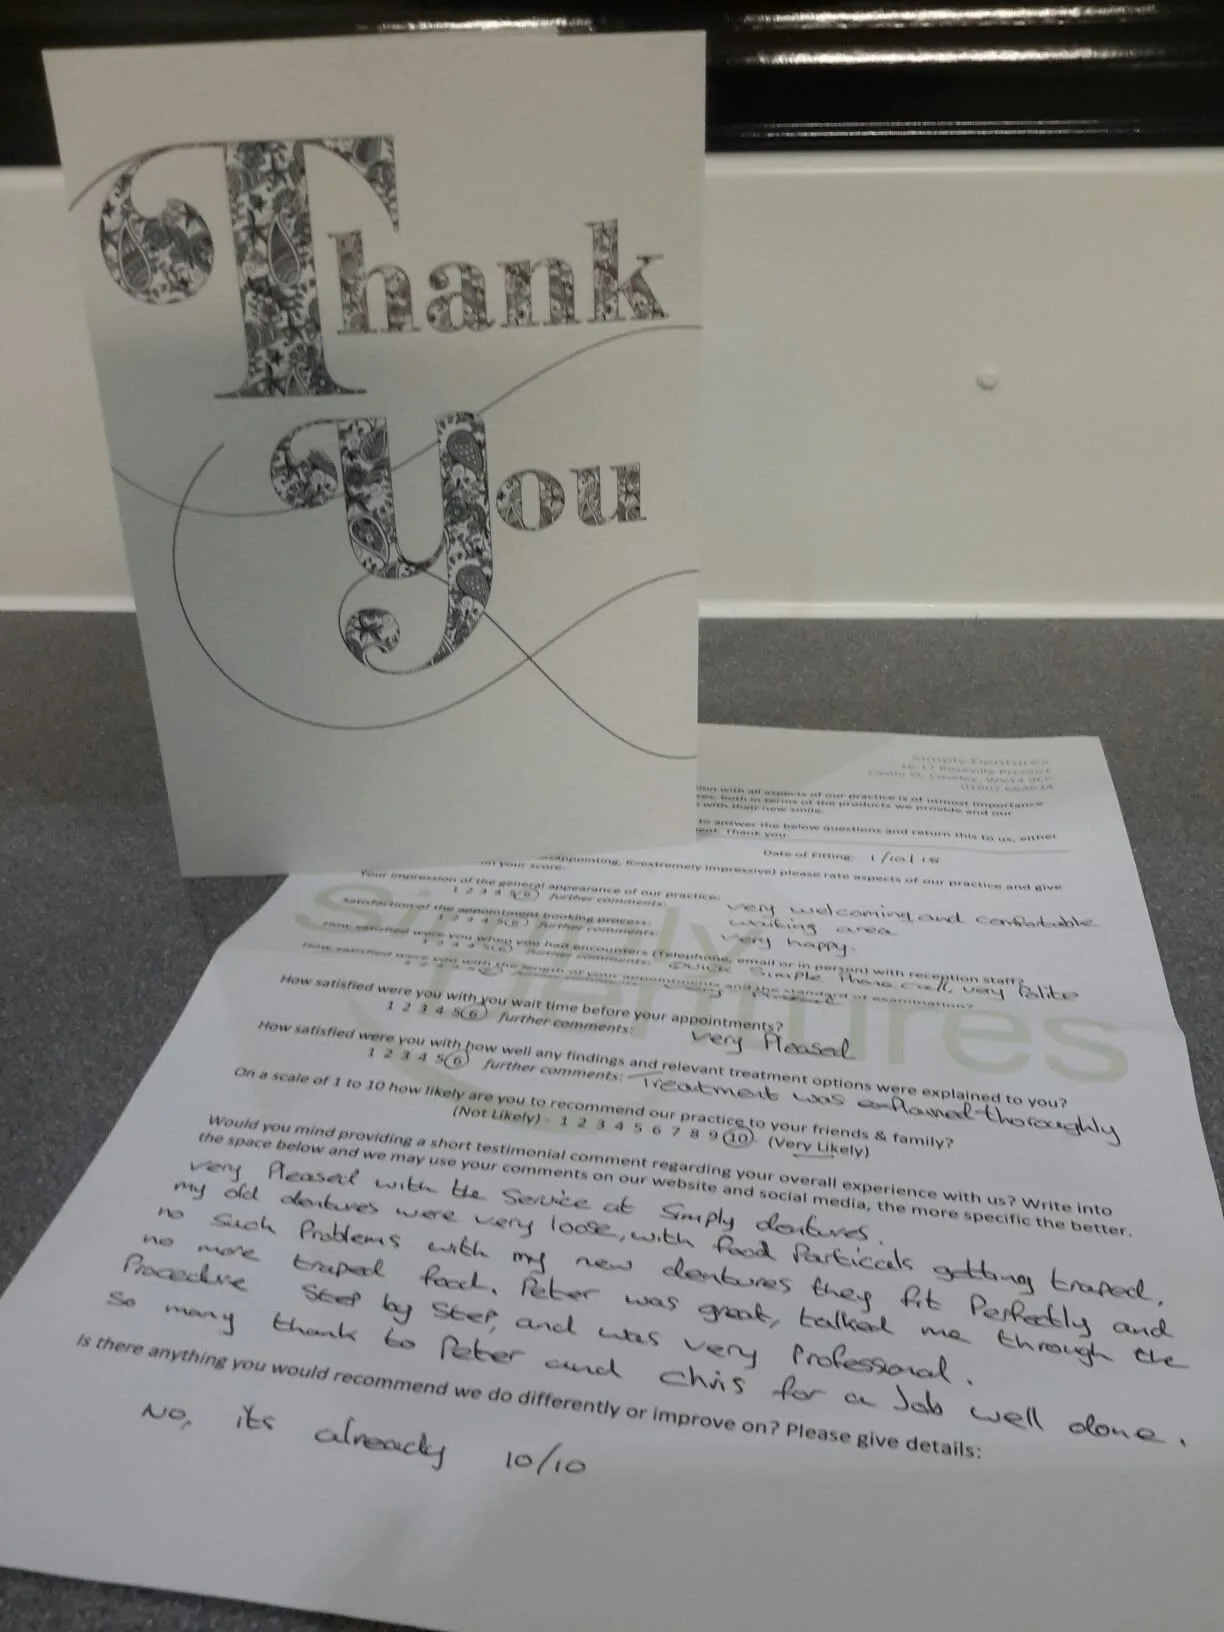 Thank
You
Simply Dentures
16-17 Roseville Precinct
Castle St, Coseley, WV14 9EP
01902
with all aspects of our practice is of utmost importance
both in terms of the products we provide and our
with their new smile.
to answer the below questions and return this to us, either
Thank you
Date of Fitting: 1/10/18
6=extremely impressive) please rate aspects of our practice and give
on your score:
Your impression of the general appearance of our practice:
1 2 3 4 5 6 further comments: very welcoming and comfortable
waiting area
Satisfaction of the appointment booking process:
1 2 3 4 5 6 further comments: very happy.
How satisfied were you when you had encounters (Telephone, email or in person) with reception staff?
1 2 3 4 5 6 further comments: Quick simple Phone call, very Polite
How satisfied were you with the length of your appointments and the standard of examination?
1 2 3 4 5 6 further comments: very Pleased
How satisfied were you with you wait time before your appointments?
1 2 3 4 5 6 further comments: very Pleased
How satisfied were you with how well any findings and relevant treatment options were explained to you?
1 2 3 4 5 6 further comments: Treatment was explained thoroughly
On a scale of 1 to 10 how likely are you to recommend our practice to your friends & family?
(Not Likely) - 1 2 3 4 5 6 7 8 9 10 - (Very Likely)
Would you mind providing a short testimonial comment regarding your overall experience with us? Write into
the space below and we may use your comments on our website and social media, the more specific the better.
very Pleased with the Service at Simply dentures.
my old dentures were very loose, with food Particals getting traped.
no such Problems with my new dentures they fit Perfectly and
no more traped food. Peter was great, talked me through the
Procedure Step by Step, and was very Professonal.
So many thank to Peter and Chris for a Job well done.
Is there anything you would recommend we do differently or improve on? Please give details:
No, its already 10/10
simply
dentures